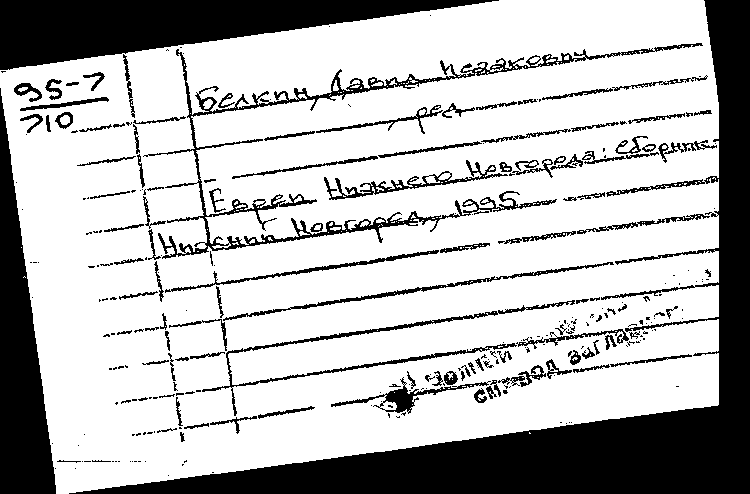 95-7
710
Белкин, Давид Исаакович
, ред
Евреи Нижнего Новгорода: сборник.-
Нижний Новгород, 1995
полней
см. под заглавием